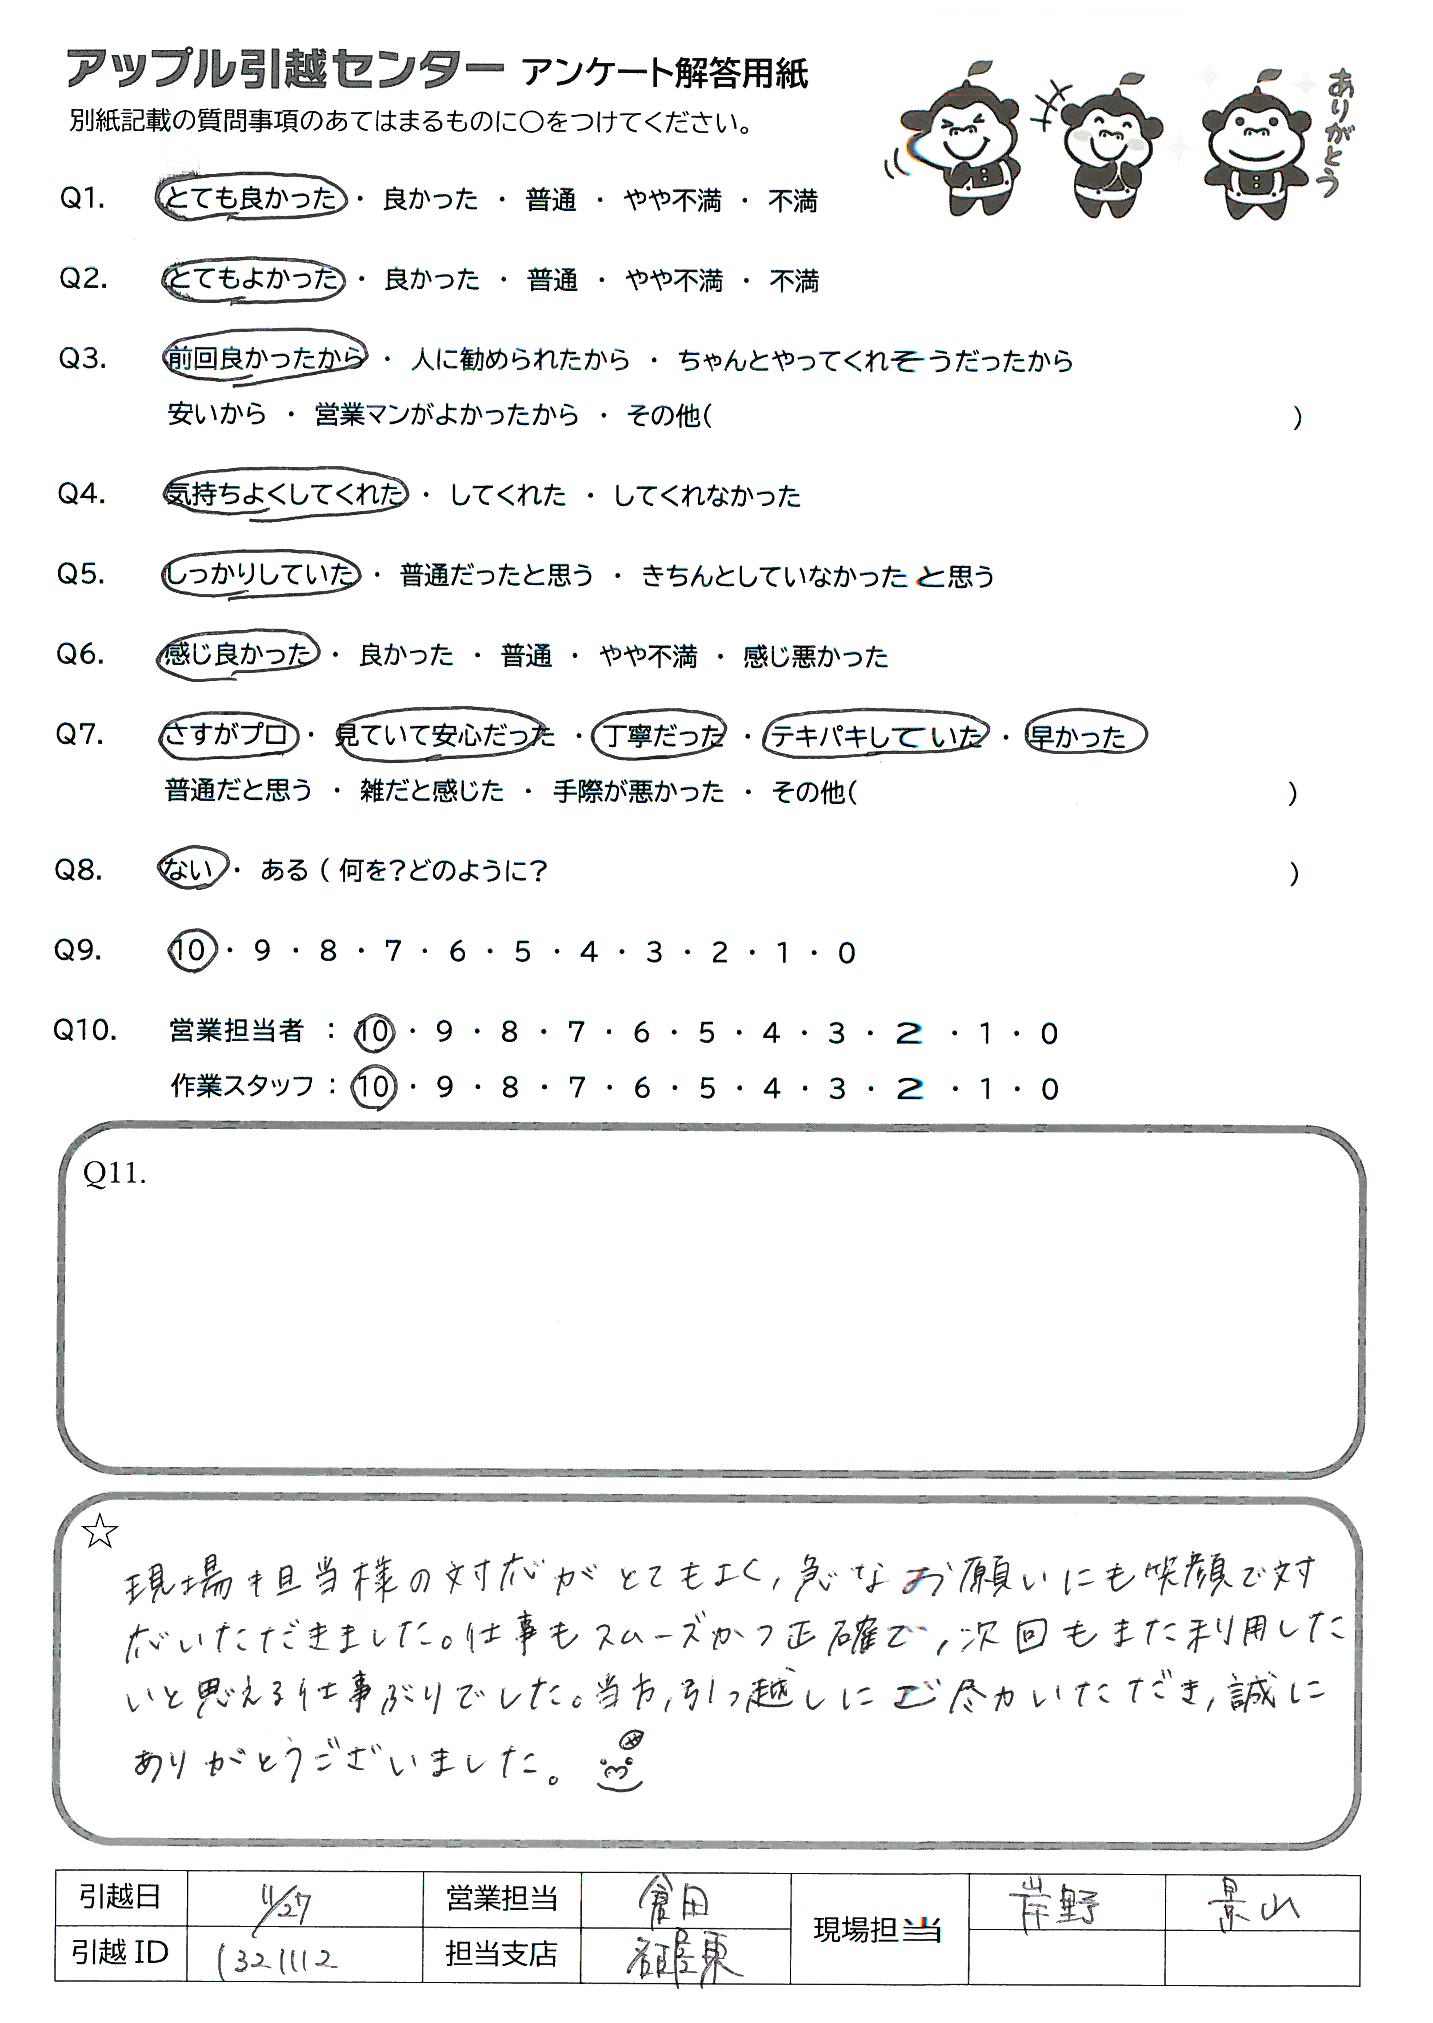 アップル引越センター アンケート解答用紙
別紙記載の質問事項のあてはまるものに○をつけてください。
ありがとう
Q1. とても良かった ・ 良かった ・ 普通 ・ やや不満 ・ 不満
Q2. とてもよかった ・ 良かった ・ 普通 ・ やや不満 ・ 不満
Q3. 前回良かったから ・ 人に勧められたから ・ ちゃんとやってくれそうだったから
安いから ・ 営業マンがよかったから ・ その他( )
Q4. 気持ちよくしてくれた ・ してくれた ・ してくれなかった
Q5. しっかりしていた ・ 普通だったと思う ・ きちんとしていなかったと思う
Q6. 感じ良かった ・ 良かった ・ 普通 ・ やや不満 ・ 感じ悪かった
Q7. さすがプロ ・ 見ていて安心だった ・ 丁寧だった ・ テキパキしていた ・ 早かった
普通だと思う ・ 雑だと感じた ・ 手際が悪かった ・ その他( )
Q8. ない ・ ある ( 何を?どのように? )
Q9. 10 ・ 9 ・ 8 ・ 7 ・ 6 ・ 5 ・ 4 ・ 3 ・ 2 ・ 1 ・ 0
Q10. 営業担当者 : 10 ・ 9 ・ 8 ・ 7 ・ 6 ・ 5 ・ 4 ・ 3 ・ 2 ・ 1 ・ 0
作業スタッフ : 10 ・ 9 ・ 8 ・ 7 ・ 6 ・ 5 ・ 4 ・ 3 ・ 2 ・ 1 ・ 0
Q11.
☆
現場担当様の対応がとてもよく、急なお願いにも笑顔で対
応いただきました。仕事もスムーズかつ正確で、次回もまた利用した
いと思える仕事ぶりでした。当方、引っ越しにご尽力いただき、誠に
ありがとうございました。
引越日 11/27 営業担当 倉田 現場担当 岸野 景山
引越ID 1321112 担当支店 名古屋東